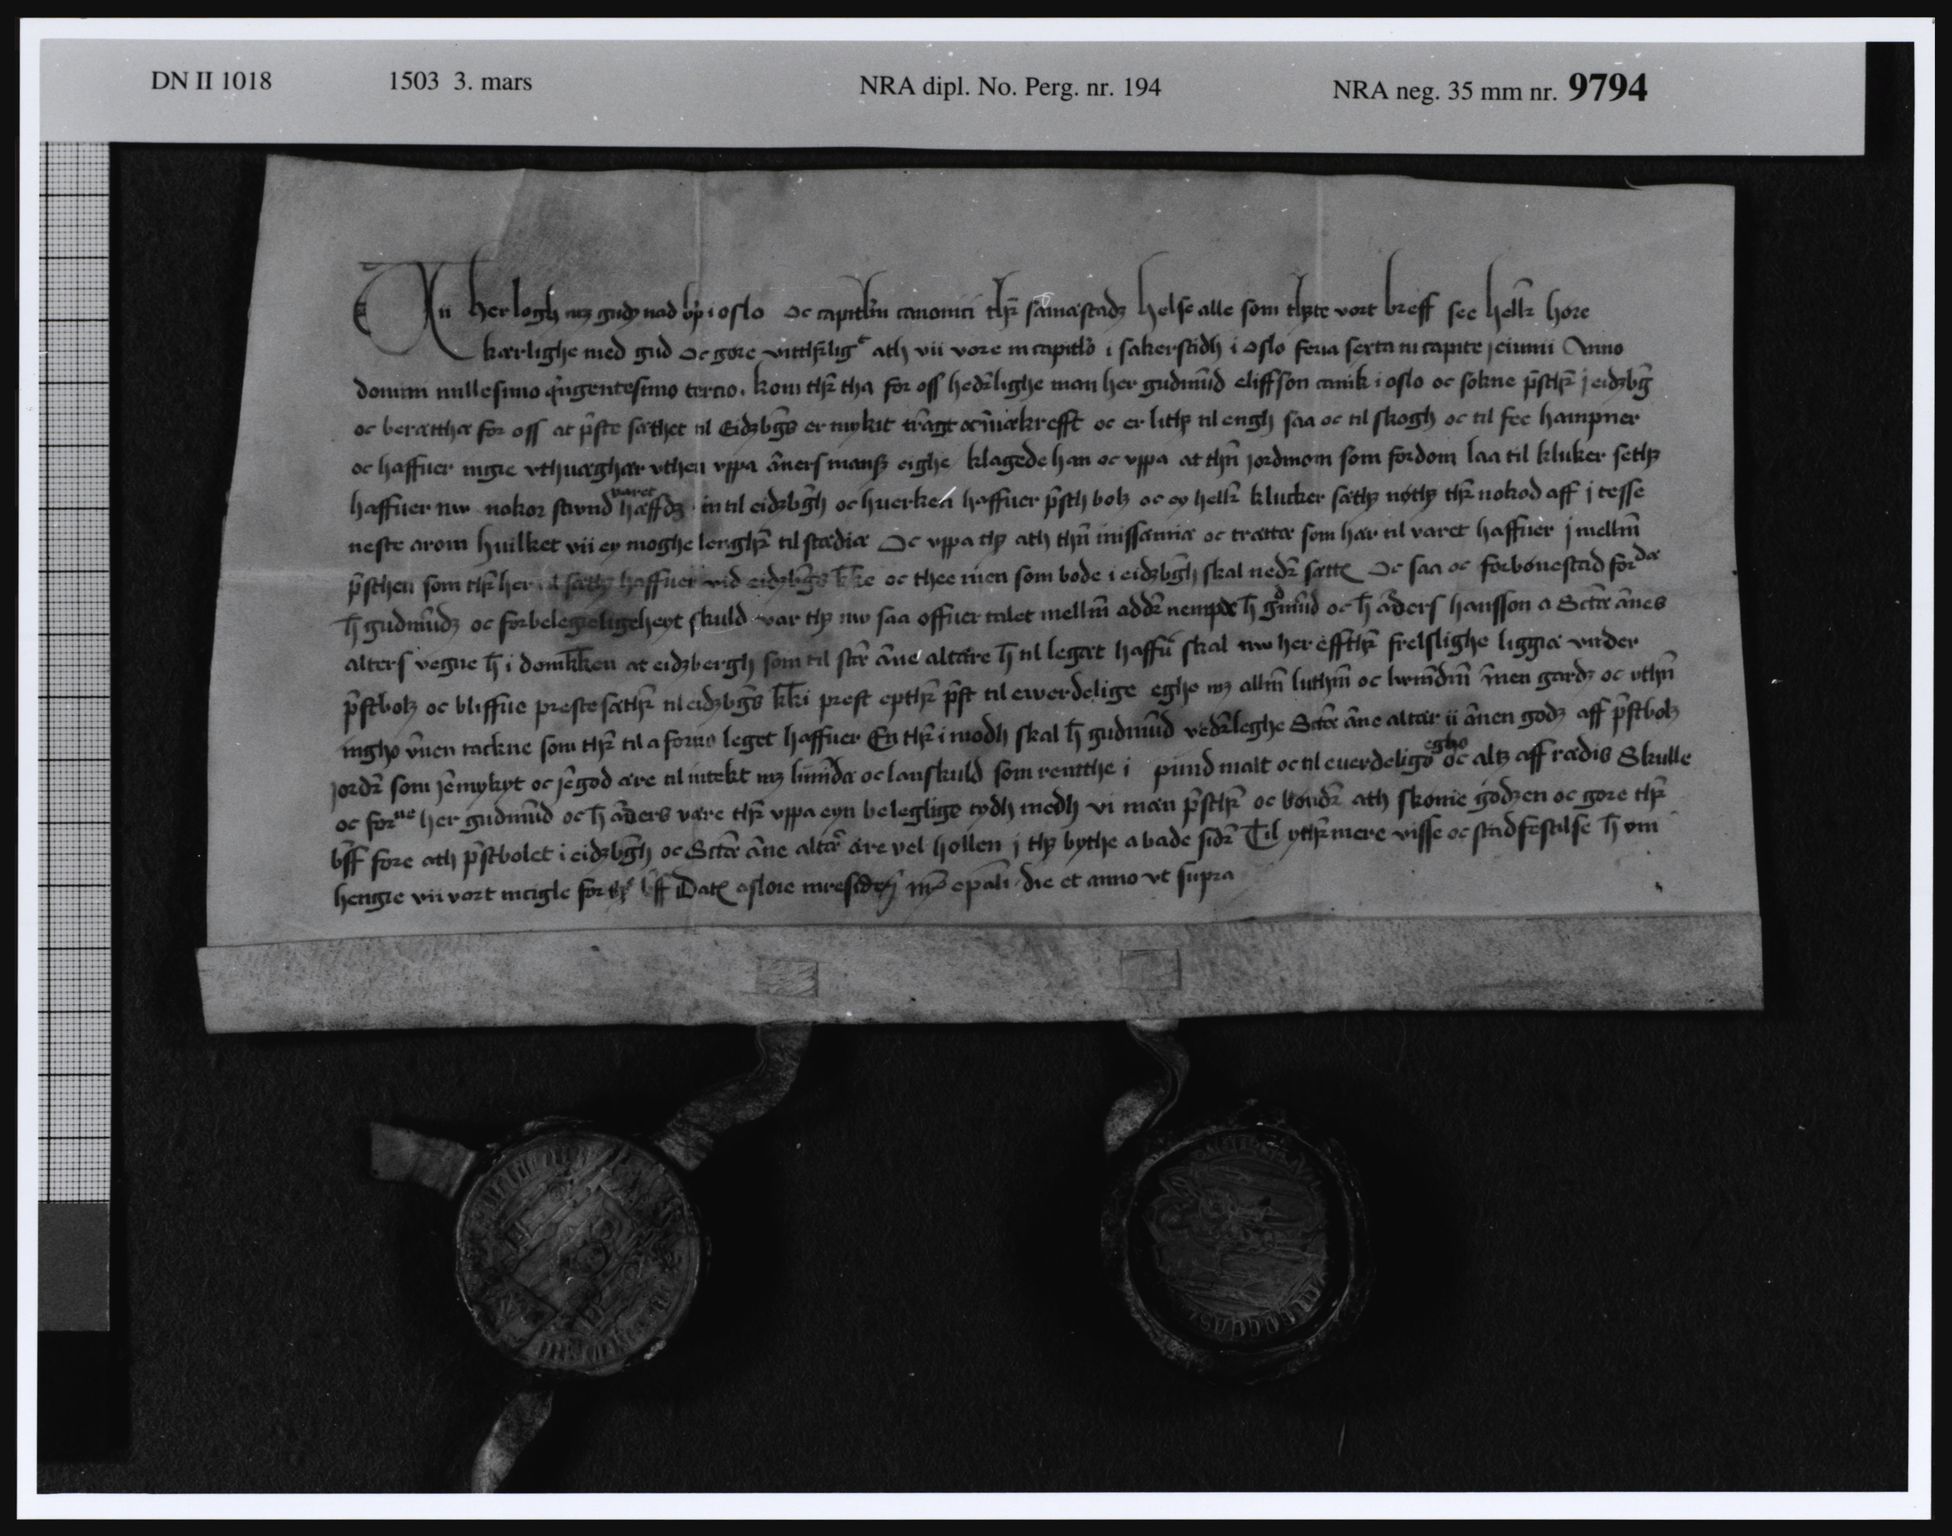 DN II 1018 1503 3. mars NRA dipl. No. Perg. nr. 194 NRA neg. 35 mm nr. 9794
herlogh mz gudz nad bp i oslo oc capitlm canonici thr samastadz helse alle som thette vort breff see hellr høre
kærlighe med gud oc gøre vitthrligt ath vii vore in capitlo i sakerstidh i oslo feria sexta in capite jeiunii Anno
domini millesimo qingentesimo tercio. kom thr tha for oss hedrlighe man her gudmūd eliffson canik i oslo oc sokne psthr j eidzbg
oc berættha for oss at pste sæthet til Eidzbgs er mykit trāgt oc er lithz til engh saa oc til skogh oc til fee hampner
oc haffuer ingie vthuæghar vthen vppa āners manss eighe klagede han oc vppa at thn jordmon som fordom laa til kluker sethz
haffuer nw nokor stwnd varet hæffdz in til eidzbgh oc huerken haffuer psth bolz oc ey hellr klucker sæthz nøthz thr nokod aff j tesse
neste arom huilket vii ey moghe lenghr til stædia Oc vppa thz ath thn missæmia oc trætta som hær til varet haffuer j mellm
psthen som thr her til sæthz haffuer vid eidzbgs kke oc thee men som bode i eidzbgh skal nedr sættz Oc saa oc for bønestad for da
h gudmūdz oc for belegieligeheyt skuld var thz nw saa offuer talet mellm addr nempde h gudmūd oc h āders hansson a Sctæ ānes
alters vegne h i domkken at eidzbergh som til scte āne altare h til legæt haffr skal nw her effthr frelslighe liggia vnder
pstbolz oc bliffue prestesæthr til eidzbgs kki prest epthr pst til ewerdelige eghe mz allm luthm oc lwndm īnen gardz oc vthn
ingho vnen tackne som thr til a forno leget haffuer En thr i modh skal h gudmūd vedrleghe Sctæ āne altar ii ānen godz aff pstbolz
jordr som jēmykyt oc jēgod are til intekt mz lunda oc lanskuld som rentthe i pund malt oc til euerdeligo egho oc altz aff rædis Skulle
oc for ne her gudmūd oc h āders være thr vppa eyn beleglige tydh medh vi mæn psthr oc bøndr ath skonie godzen oc gøre thr
bff fore ath pstbolet i eidzbgh oc Sctæ āne altar are vel hollen j thz bythe a bade sidr Til ythrmere visse oc stadfestilse h om
hengie vii vort incigle for bff Datz osloie epali die et anno vt supra